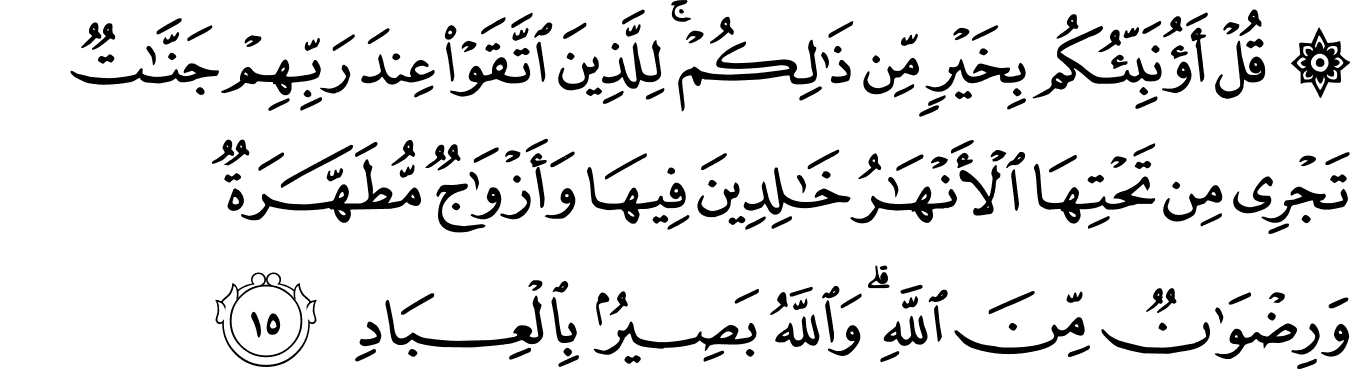 ۞ قُلْ أَؤُنَبِّئُكُم بِخَيْرٍ مِّن ذَٰلِكُمْ ۚ لِلَّذِينَ ٱتَّقَوْا۟ عِندَ رَبِّهِمْ جَنَّـٰتٌ
تَجْرِى مِن تَحْتِهَا ٱلْأَنْهَـٰرُ خَـٰلِدِينَ فِيهَا وَأَزْوَٰجٌ مُّطَهَّرَةٌ
وَرِضْوَٰنٌ مِّنَ ٱللَّهِ ۗ وَٱللَّهُ بَصِيرٌۢ بِٱلْعِبَادِ ١٥